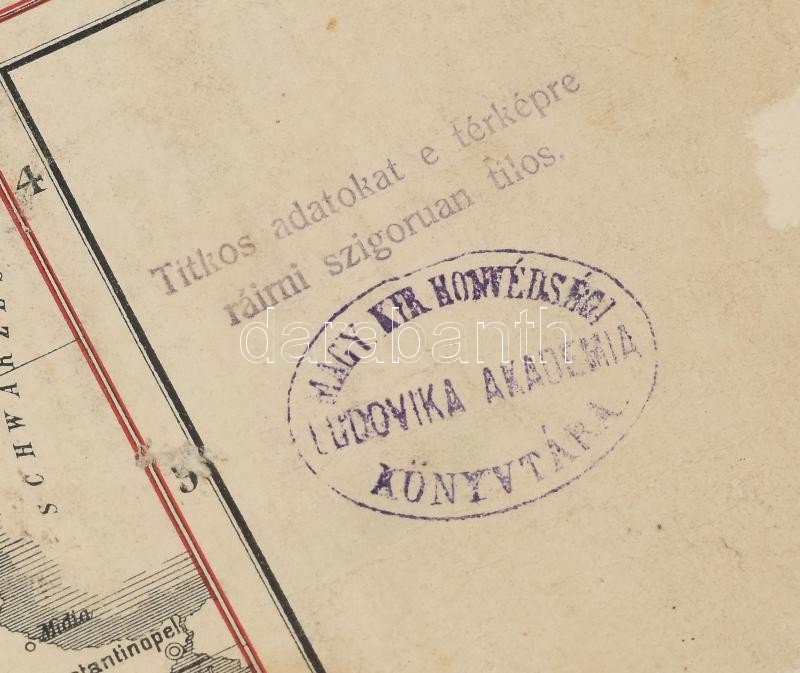 4
Titkos adatokat e térképre
ráirni szigoruan tilos.
MAGY. KIR HONVÉDSÉGI
LUDOVIKA AKADEMIA
KÖNYVTÁRA.
darabanth
5
Midia